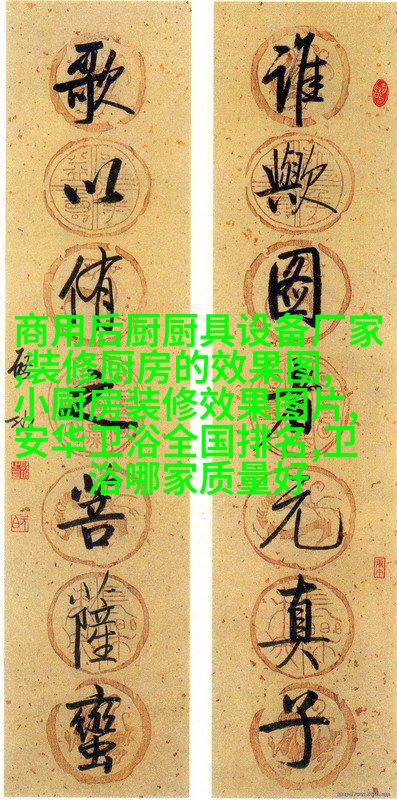 谁歟图者元真子
歌以侑之菩薩蠻
啓功
商用后厨厨具设备厂家
,装修厨房的效果图,
小厨房装修效果图片,
安华卫浴全国排名,卫
浴哪家质量好